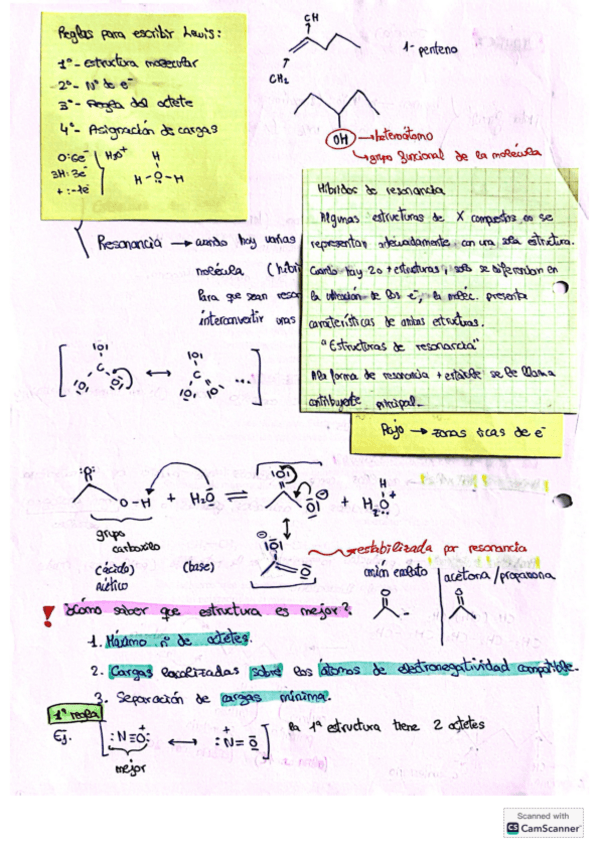 Reglas para escribir Lewis:
1º- estructura molecular
2º- Nº de e⁻
3º- Regla del octete
4º- Asignación de cargas
O:6e⁻
3H:3e⁻
+:-1e⁻
H₃O⁺
H
H-O-H
CH
CH₂
1-penteno
OH → heteroátomo
→ grupo funcional de la molécula
Híbridos de resonancia
Algunas estructuras de X compuestos no se
representan adecuadamente con una sola estructura.
Cuando hay 2 o + estructuras, solo se diferencian en
la ubicación de los e⁻, la moléc. presenta
características de ambas estructuras.
"Estructuras de resonancia"
A la forma de resonancia + estable se le llama
contribuyente principal.
Rojo → zonas ricas de e⁻
Resonancia → cuando hay varias
molécula (híbri
Para que sean reson
interconvertir unas
O-H + H₂O ⇌ + H₂O⁺
H
grupo
carboxilo
(ácido)
acético
(base)
→ estabilizada por resonancia
anión enolato
acetona/propanona
! ¿Cómo saber que estructura es mejor?
1. Máximo nº de octetes.
2. Cargas localizadas sobre los átomos de electronegatividad compatible.
3. Separación de cargas mínima.
1ª regla
Ej. [:N≡O:⁺ ↔ :N=O⁺] la 1ª estructura tiene 2 octetes
mejor
Scanned with
CS CamScanner